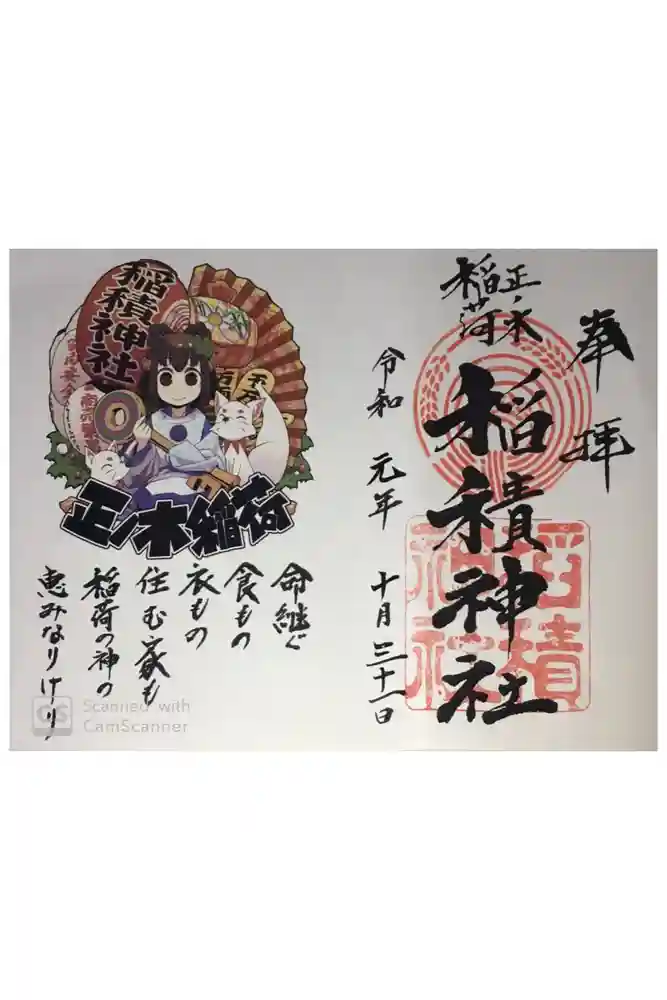 奉拝
正ノ木
稲荷
稲積神社
稲積
神社
令和 元年 十月 三十一日
稲積神社
正ノ木稲荷
命継ぐ
食もの
衣もの
住む家も
稲荷の神の
恵みなりけり
CS
Scanned with
CamScanner